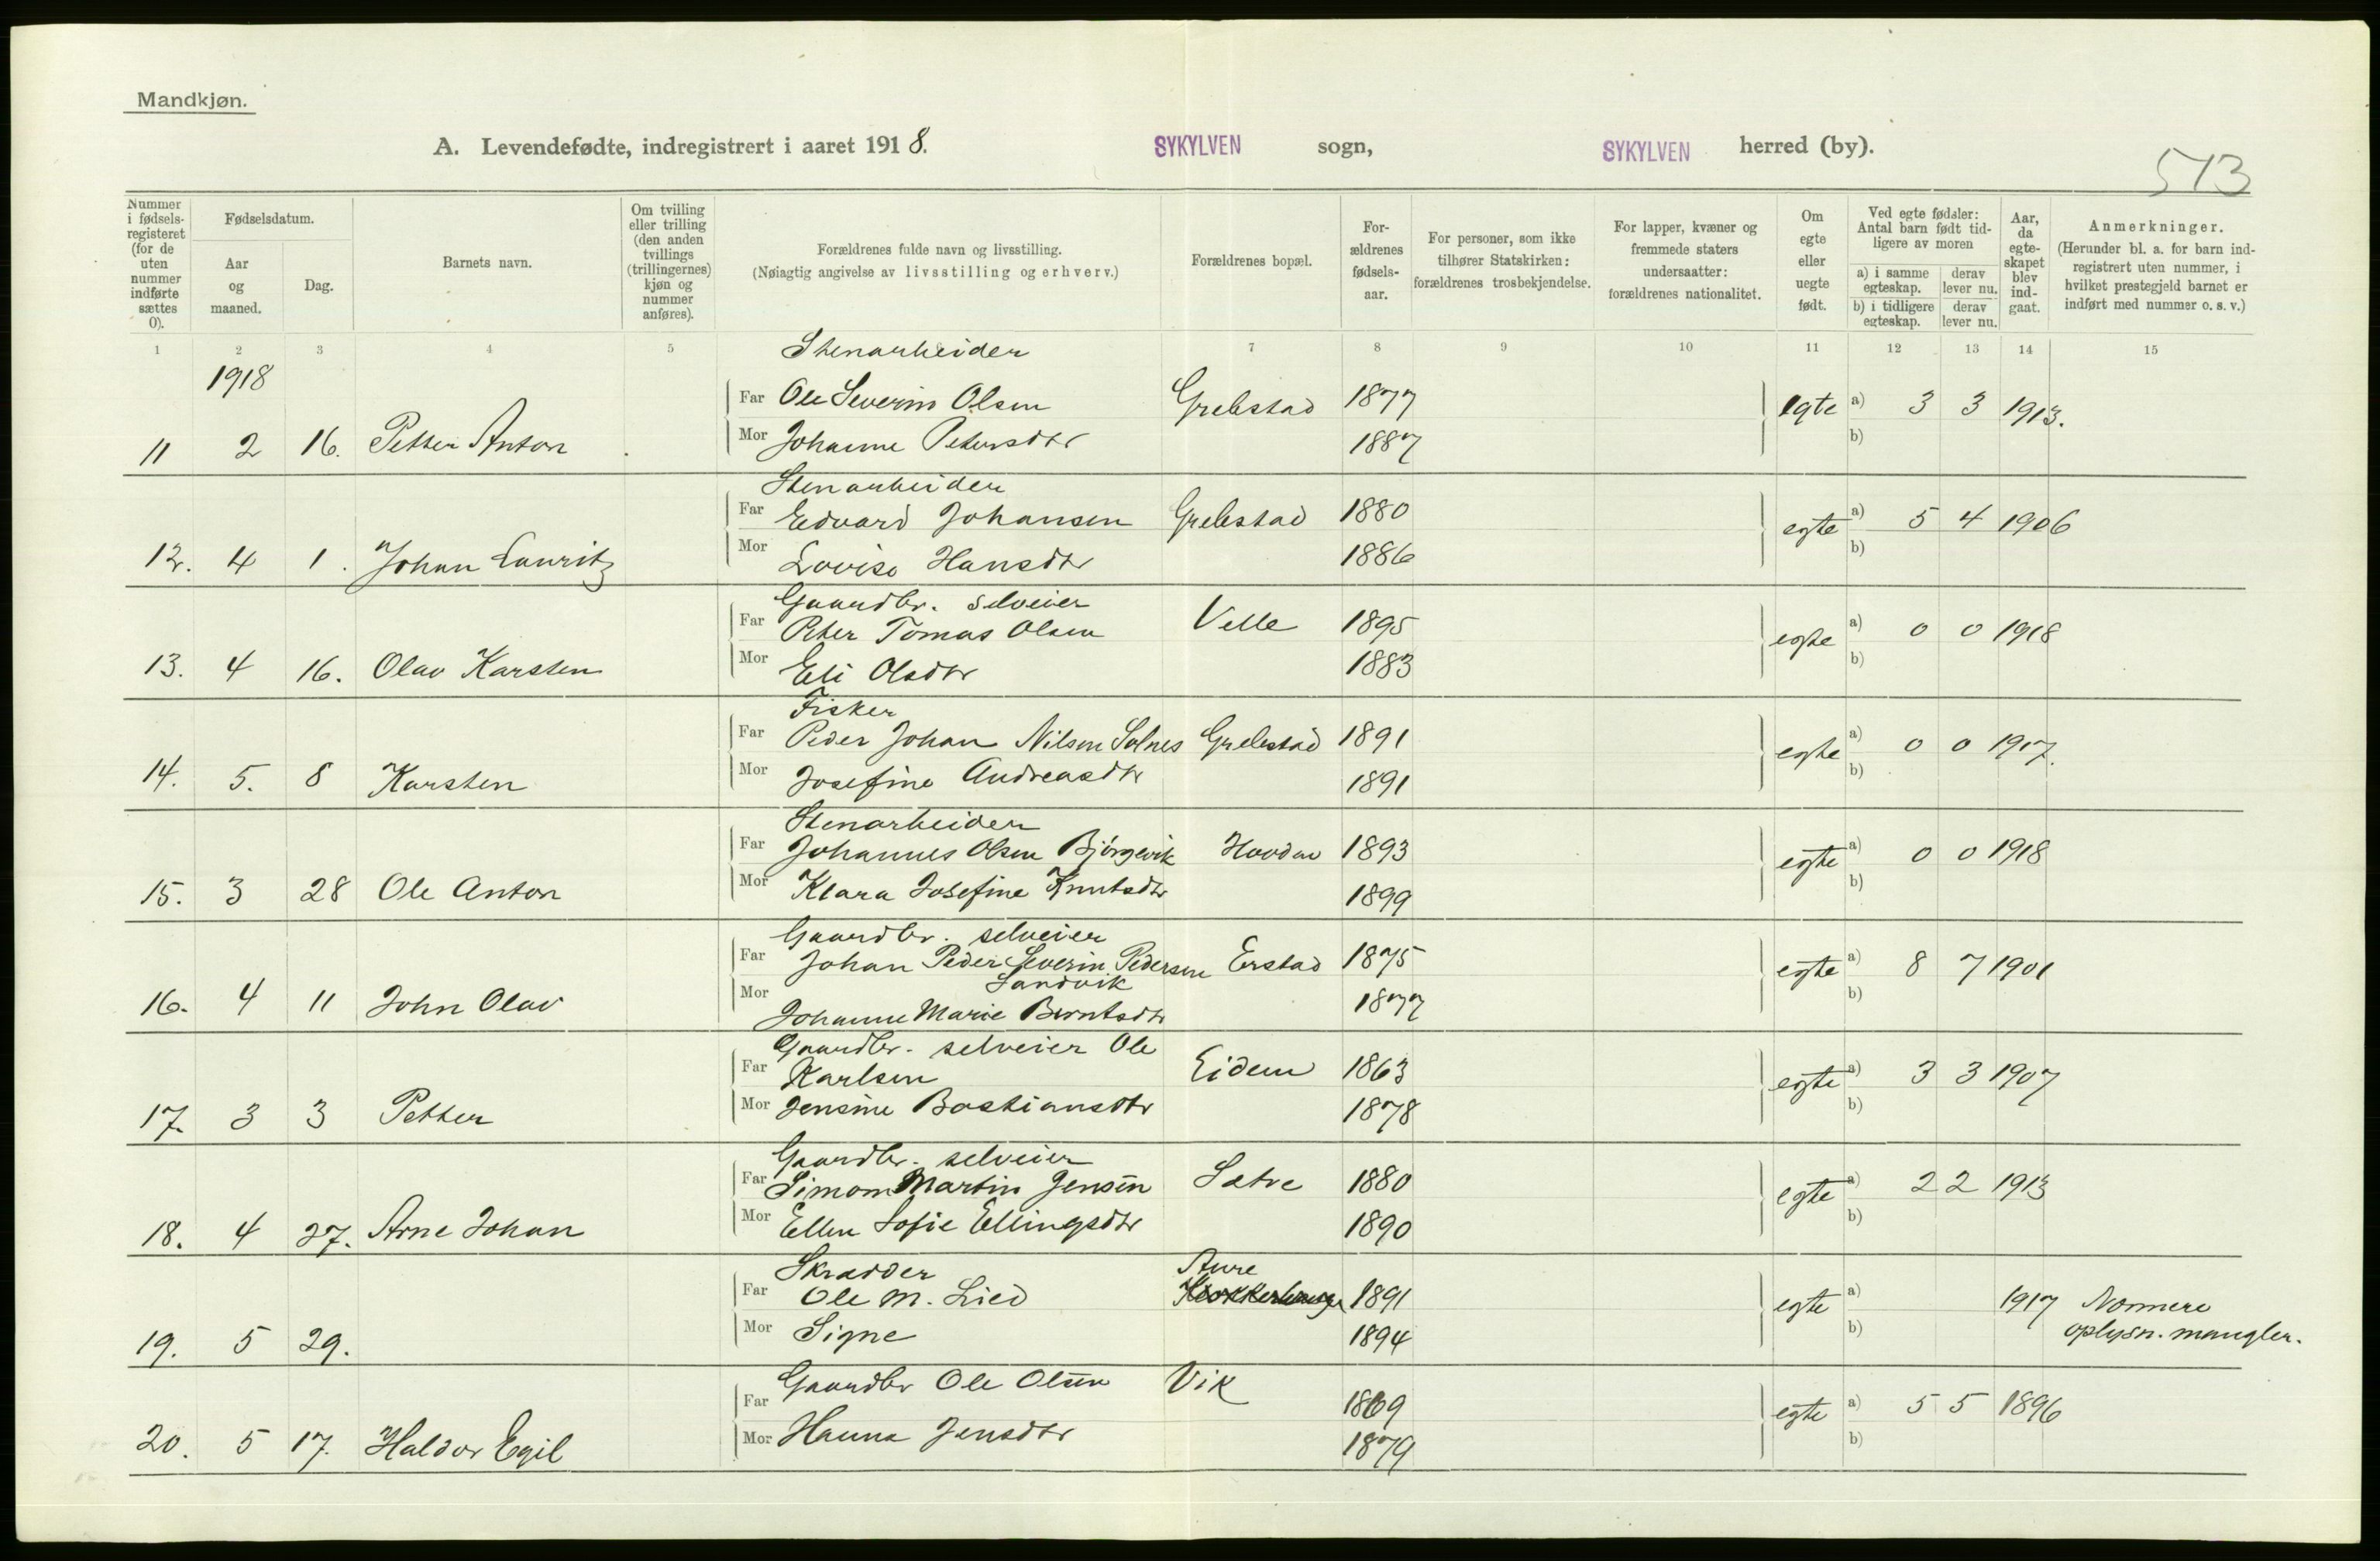 Mandkjøn.
A. Levendefødte, indregistrert i aaret 1918. SYKYLVEN sogn, SYKYLVEN herred (by).
513
Nummer i fødselsregisteret (for de uten nummer indførte sættes 0).
Fødselsdatum.
Aar og maaned.
Dag.
Barnets navn.
Om tvilling eller trilling (den anden tvillings (trillingernes) kjøn og nummer anføres).
Forældrenes fulde navn og livsstilling.
(Nøiagtig angivelse av livsstilling og erhverv.)
Forældrenes bopæl.
Forældrenes fødselsaar.
For personer, som ikke tilhører Statskirken: forældrenes trosbekjendelse.
For lapper, kvæner og fremmede staters undersaatter: forældrenes nationalitet.
Om egte eller uegte født.
Ved egte fødsler: Antal barn født tidligere av moren
a) i samme egteskap. derav lever nu.
b) i tidligere egteskap. derav lever nu.
Aar, da egteskapet blev indgaat.
Anmerkninger.
(Herunder bl. a. for barn indregistrert uten nummer, i hvilket prestegjeld barnet er indført med nummer o. s. v.)
1 2 3 4 5 6 7 8 9 10 11 12 13 14 15
1918
Stenarbeider
Far Ole Severin Olsen Grebstad 1877 egte a) 3 3 1913.
11 2 16. Petter Anton Mor Johanne Petersdtr 1887 b)
Stenarbeider
Far Edvard Johansen Grebstad 1880 egte a) 5 4 1906
12. 4 1. Johan Lauritz Mor Lovise Hansdtr 1886 b)
Gaardbr. selveier
Far Peter Tomas Olsen Velle 1895 egte a) 0 0 1918
13. 4 16. Olav Karsten Mor Eli Olsdtr 1883 b)
Fisker
Far Peder Johan Nilsen Solnes Grebstad 1891 egte a) 0 0 1917.
14. 5. 8 Karsten Mor Josefine Andreasdtr 1891 b)
Stenarbeider
Far Johannes Olsen Bjørgevik Hovden 1893 egte a) 0 0 1918
15. 3 28 Ole Anton Mor Klara Josefine Knutsdtr 1899 b)
Gaardbr. selveier
Far Johan Peder Severin Pedersen Erstad 1875 egte a) 8 7 1901
Sandvik
16. 4 11 John Olav Mor Johanne Marie Berntsdtr 1877 b)
Gaardbr. selveier Ole
Far Karlsen Eidem 1863 egte a) 3 3 1907
17. 3 3 Petter Mor Jensine Bastiansdtr 1878 b)
Gaardbr. selveier
Far Simon Martin Jensen Satre 1880 egte a) 2 2 1913
18. 4 27. Arne Johan Mor Ellen Sofie Ellingsdtr 1890 b)
Skradder Aure
Far Ole M. Lied 1891 egte a) 1917 Nærmere
19. 5 29. Mor Signe 1894 b) oplysn. mangler.
Gaardbr Ole Olsen Vik
Far 1869 egte a) 5 5 1896
20. 5 17. Haldor Egil Mor Hanna Jensdtr 1879 b)